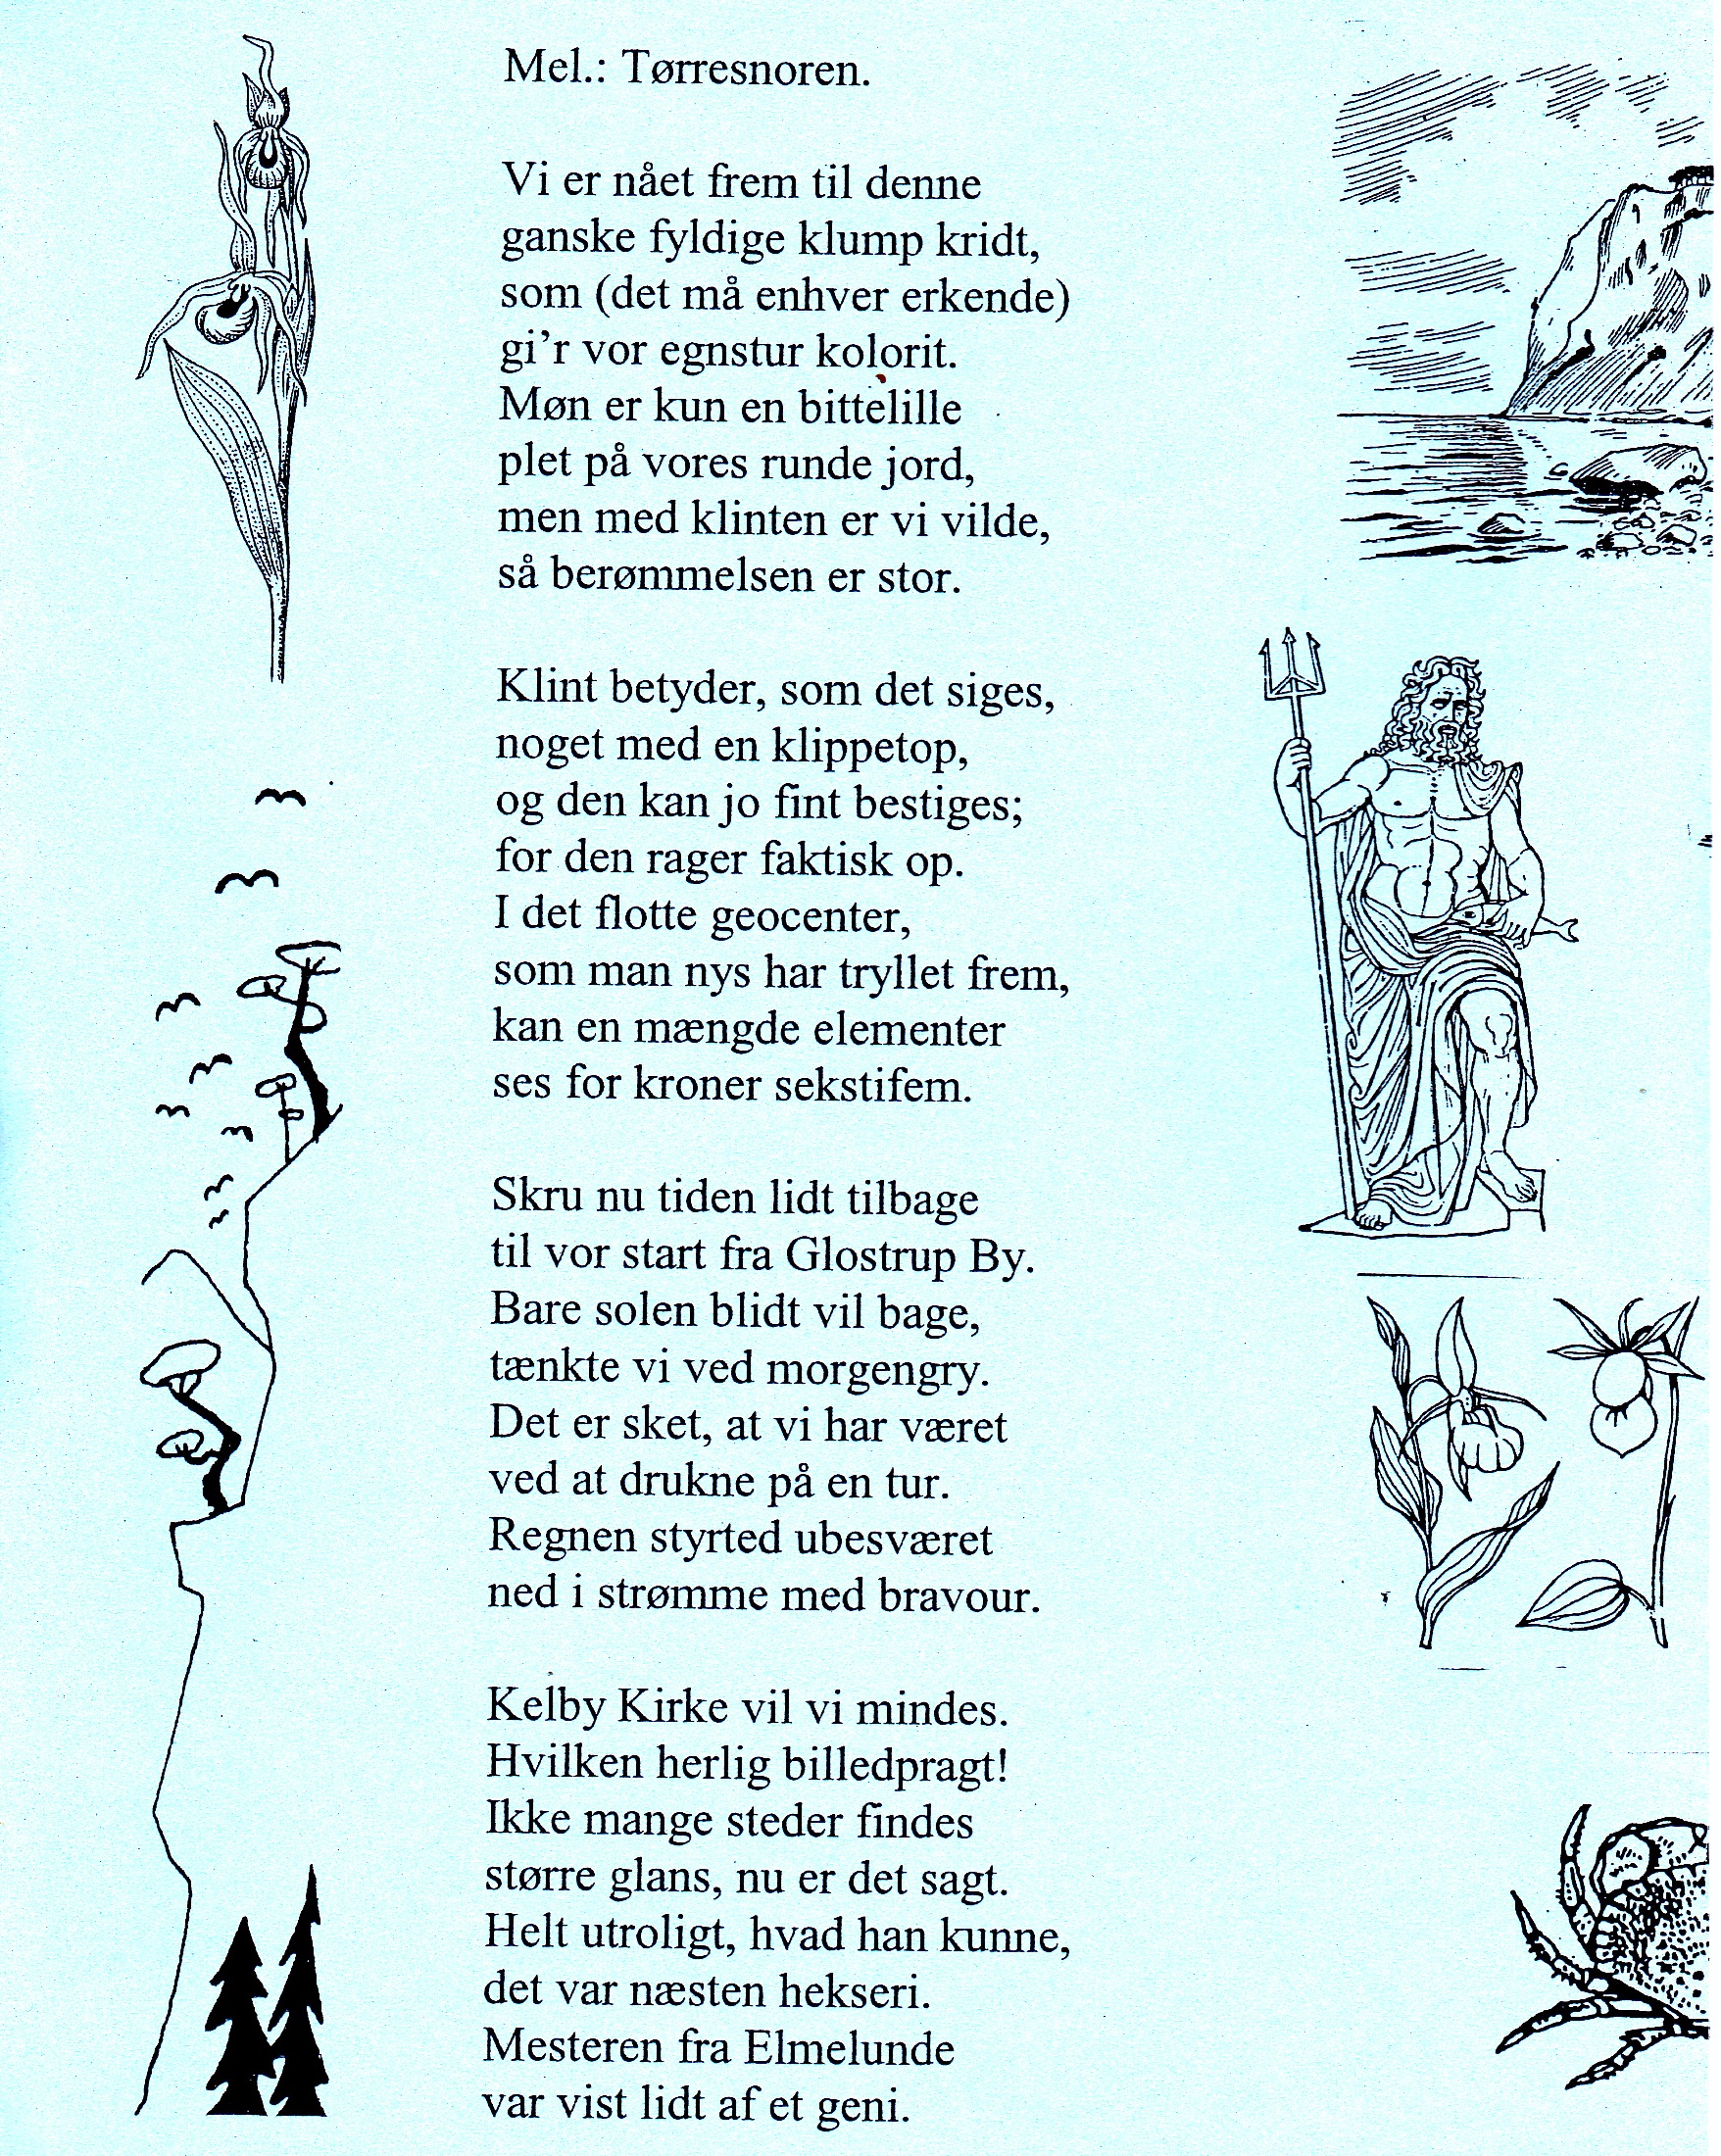 Mel.: Tørresnoren.
Vi er nået frem til denne
ganske fyldige klump kridt,
som (det må enhver erkende)
gi'r vor egnstur kolorit.
Møn er kun en bittelille
plet på vores runde jord,
men med klinten er vi vilde,
så berømmelsen er stor.
Klint betyder, som det siges,
noget med en klippetop,
og den kan jo fint bestiges;
for den rager faktisk op.
I det flotte geocenter,
som man nys har tryllet frem,
kan en mængde elementer
ses for kroner sekstifem.
Skru nu tiden lidt tilbage
til vor start fra Glostrup By.
Bare solen blidt vil bage,
tænkte vi ved morgengry.
Det er sket, at vi har været
ved at drukne på en tur.
Regnen styrted ubesværet
ned i strømme med bravour.
Kelby Kirke vil vi mindes.
Hvilken herlig billedpragt!
Ikke mange steder findes
større glans, nu er det sagt.
Helt utroligt, hvad han kunne,
det var næsten hekseri.
Mesteren fra Elmelunde
var vist lidt af et geni.